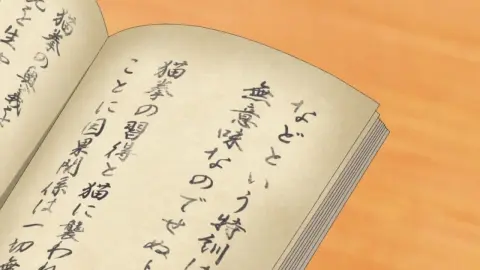 などという特訓は
無意味なのでせぬ
猫拳の習得と
ことに因果関係は一切無
猫に襲われ
猫拳の奥義を